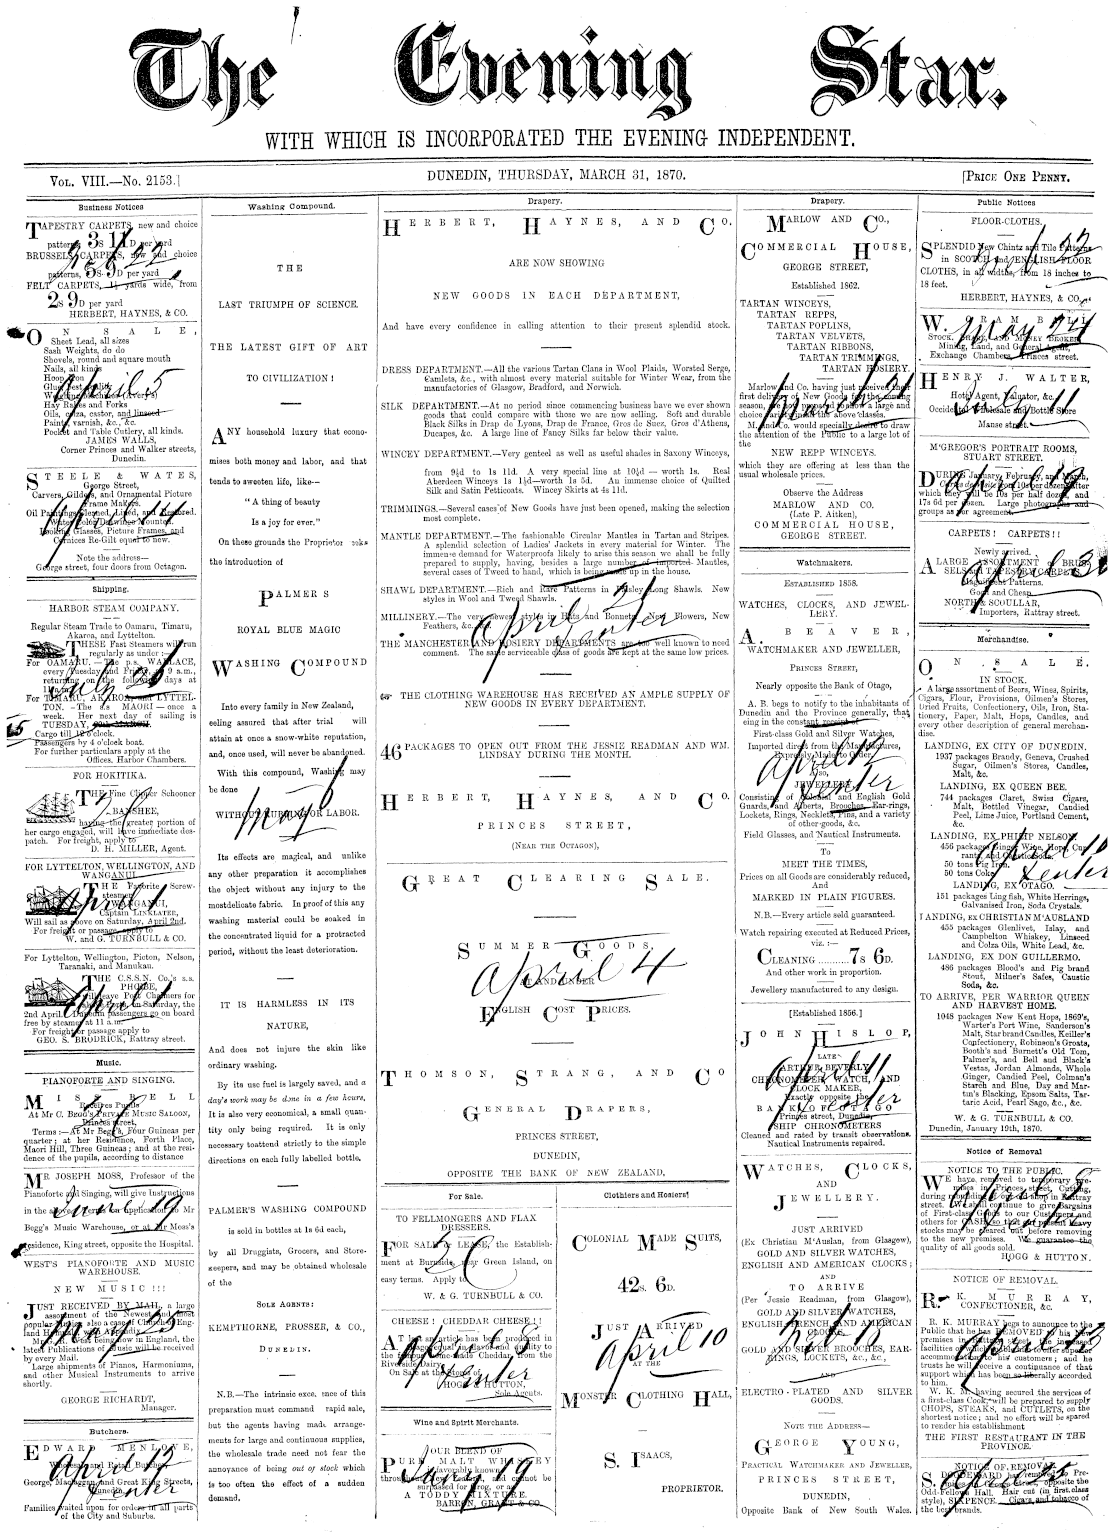 The Evening Star.
WITH WHICH IS INCORPORATED THE EVENING INDEPENDENT.
VOL. VIII.—NO. 2153.]
DUNEDIN, THURSDAY, MARCH 31, 1870.
[PRICE ONE PENNY.
Business Notices
TAPESTRY CARPETS, new and choice
patterns, 3S 11D per yard
BRUSSELS CARPETS, new and choice
patterns, 5S 9D per yard
FELT CARPETS, 1½ yards wide, from
2S 9D per yard
HERBERT, HAYNES, & CO.
ON SALE,
Sheet Lead, all sizes
Sash Weights, do do
Shovels, round and square mouth
Nails, all kinds
Hoop Iron
april 5
Hay Rakes and Forks
Oils, colza, castor, and linseed
Paints, varnish, &c., &c.
Pocket and Table Cutlery, all kinds.
JAMES WALLS,
Corner Princes and Walker streets,
Dunedin.
STEELE & WATES,
George Street,
Carvers, Gilders, and Ornamental Picture
Frame Makers.
Oil Paintings Cleaned, Lined, and Restored.
Water Color Drawings Mounted.
Looking Glasses, Picture Frames, and
Cornices Re-Gilt equal to new.
Note the address—
George street, four doors from Octagon.
Shipping.
HARBOR STEAM COMPANY.
Regular Steam Trade to Oamaru, Timaru,
Akaroa, and Lyttelton.
THESE Fast Steamers will run
regularly as under:—
For OAMARU.—The p.s. WALLACE,
every Tuesday and Friday, at 9 a.m.,
returning on the following days at
July 26
For TIMARU, AKAROA, and LYTTEL-
TON.—The s.s MAORI—once a
week. Her next day of sailing is
TUESDAY, 29th MARCH.
Cargo till 12 o'clock.
Passengers by 4 o'clock boat.
For further particulars apply at the
Offices. Harbor Chambers.
FOR HOKITIKA.
THE Fine Clipper Schooner
BANSHEE,
having the greater portion of
her cargo engaged, will have immediate des-
patch. For freight, apply to
D. H. MILLER, Agent.
FOR LYTTELTON, WELLINGTON, AND
WANGANUI.
THE Favorite Screw-
steamer
WANGANUI,
Captain LINKLATER,
Will sail as above on Saturday, April 2nd.
For freight or passage, apply to
W. and G. TURNBULL & CO.
april 1
For Lyttelton, Wellington, Picton, Nelson,
Taranaki, and Manukau.
THE C.S.S.N. Co.'s s.s.
PHOEBE,
Will leave Port Chalmers for
2nd April. Dunedin passengers go on board
free by steamer at 11 a.m.
For freight or passage apply to
GEO. S. BRODRICK, Rattray street.
april 1
Music.
PIANOFORTE AND SINGING.
MISS BELL
Receives Pupils
At Mr C. BEGG'S PRIVATE MUSIC SALOON,
Princes street,
Terms:—At Mr Begg's, Four Guineas per
quarter; at her Residence, Forth Place,
Maori Hill, Three Guineas; and at the resi-
dence of the pupils, according to distance
MR JOSEPH MOSS, Professor of the
Pianoforte and Singing, will give Instructions
in the above. Terms on application to Mr
Begg's Music Warehouse, or at Mr Moss's
residence, King street, opposite the Hospital.
June 19
WEST'S PIANOFORTE AND MUSIC
WAREHOUSE.
NEW MUSIC!!!
JUST RECEIVED BY MAIL, a large
assortment of the Newest and most
latest Publications of Music will be received
by every Mail.
Large shipments of Pianos, Harmoniums,
and other Musical Instruments to arrive
shortly.
GEORGE RICHARDT,
Manager.
may 25
Butchers.
EDWARD MENLOVE,
Wholesale and Retail Butcher,
George, Maclaggan, and Great King Streets,
Dunedin.
Families waited upon for orders in all parts
of the City and Suburbs.
Washing Compound.
THE
LAST TRIUMPH OF SCIENCE.
THE LATEST GIFT OF ART
TO CIVILIZATION!
ANY household luxury that econo-
mises both money and labor, and that
tends to sweeten life, like—
"A thing of beauty
Is a joy for ever."
On these grounds the Proprietor seeks
the introduction of
PALMER'S
ROYAL BLUE MAGIC
WASHING COMPOUND
Into every family in New Zealand,
eeling assured that after trial will
attain at once a snow-white reputation,
and, once used, will never be abandoned.
With this compound, Washing may
be done
WITHOUT RUBBING OR LABOR.
may 6
Its effects are magical, and unlike
any other preparation it accomplishes
the object without any injury to the
mostdelicate fabric. In proof of this any
washing material could be soaked in
the concentrated liquid for a protracted
period, without the least deterioration.
IT IS HARMLESS IN ITS
NATURE,
And does not injure the skin like
ordinary washing.
By its use fuel is largely saved, and a
day's work may be done in a few hours,
It is also very economical, a small quan-
tity only being required. It is only
necessary toattend strictly to the simple
directions on each fully labelled bottle.
PALMER'S WASHING COMPOUND
is sold in bottles at 1s 6d each,
by all Druggists, Grocers, and Store-
keepers, and may be obtained wholesale
of the
SOLE AGENTS:
KEMPTHORNE, PROSSER, & CO.,
DUNEDIN.
N.B.—The intrinsic exce, ence of this
preparation must command rapid sale,
but the agents having made arrange-
ments for large and continuous supplies,
the wholesale trade need not fear the
annoyance of being out of stock which
is too often the effect of a sudden
demand.
Drapery.
HERBERT, HAYNES, AND CO.
ARE NOW SHOWING
NEW GOODS IN EACH DEPARTMENT,
And have every confidence in calling attention to their present splendid stock.
DRESS DEPARTMENT.—All the various Tartan Clans in Wool Plaids, Worsted Serge,
Camlets, &c., with almost every material suitable for Winter Wear, from the
manufactories of Glasgow, Bradford, and Norwich.
SILK DEPARTMENT.—At no period since commencing business have we ever shown
goods that could compare with those we are now selling. Soft and durable
Black Silks in Drap de Lyons, Drap de France, Gros de Suez, Gros d'Athens,
Ducapes, &c. A large line of Fancy Silks far below their value.
WINCEY DEPARTMENT.—Very genteel as well as useful shades in Saxony Winceys,
from 9½d to 1s 11d. A very special line at 10½d — worth 1s. Real
Aberdeen Winceys 1s 1½d—worth 1s 5d. An immense choice of Quilted
Silk and Satin Petticoats. Wincey Skirts at 4s 11d.
TRIMMINGS.—Several cases of New Goods have just been opened, making the selection
most complete.
MANTLE DEPARTMENT.—The fashionable Circular Mantles in Tartan and Stripes.
A splendid selection of Ladies' Jackets in every material for Winter. The
immense demand for Waterproofs likely to arise this season we shall be fully
prepared to supply, having, besides a large number of imported Mantles,
several cases of Tweed to hand, which is being made up in the house.
SHAWL DEPARTMENT.—Rich and Rare Patterns in Paisley Long Shawls. New
styles in Wool and Tweed Shawls.
MILLINERY.—The very newest styles in Hats and Bonnets. New Flowers, New
Feathers, &c.
THE MANCHESTER AND HOSIERY DEPARTMENTS are too well known to need
comment. The same serviceable class of goods are kept at the same low prices.
THE CLOTHING WAREHOUSE HAS RECEIVED AN AMPLE SUPPLY OF
NEW GOODS IN EVERY DEPARTMENT.
46 PACKAGES TO OPEN OUT FROM THE JESSIE READMAN AND WM.
LINDSAY DURING THE MONTH.
HERBERT, HAYNES, AND CO.
PRINCES STREET,
(NEAR THE OCTAGON),
GREAT CLEARING SALE.
SUMMER GOODS,
AT AND UNDER
ENGLISH COST PRICES.
april 4
THOMSON, STRANG, AND CO
GENERAL DRAPERS,
PRINCES STREET,
DUNEDIN,
OPPOSITE THE BANK OF NEW ZEALAND.
For Sale.
TO FELLMONGERS AND FLAX
DRESSERS.
FOR SALE or LEASE, the Establish-
ment at Burnside, near Green Island, on
easy terms. Apply to
W. & G. TURNBULL & CO.
CHEESE! CHEDDAR CHEESE!!
HOGG & HUTTON,
Sole Agents.
Wine and Spirit Merchants.
OUR BLEND OF
PURE MALT WHISKEY
A TODDY MIXTURE.
BARRON, GRANT & CO.
Clothiers and Hosiers
COLONIAL MADE SUITS,
42S. 6D.
JUST ARRIVED
AT THE
april 10
MONSTER CLOTHING HALL,
S. ISAACS,
PROPRIETOR.
Drapery.
MARLOW AND CO.,
COMMERCIAL HOUSE,
GEORGE STREET,
Established 1862.
TARTAN WINCEYS,
TARTAN REPPS,
TARTAN POPLINS,
TARTAN VELVETS,
TARTAN RIBBONS,
TARTAN TRIMMINGS,
TARTAN HOSIERY.
Marlow and Co. having just received their
first delivery of New Goods for the coming
season, are now prepared to show a large and
choice variety in all the above classes.
M. and Co. would specially desire to draw
the attention of the Public to a large lot of
the
NEW REPP WINCEYS.
which they are offering at less than the
usual wholesale prices.
Observe the Address
MARLOW AND CO.
(Late P. Aitken),
COMMERCIAL HOUSE,
GEORGE STREET.
Watchmakers.
ESTABLISHED 1858.
WATCHES, CLOCKS, AND JEWEL-
LERY.
A. BEAVER,
WATCHMAKER AND JEWELLER,
PRINCES STREET,
Nearly opposite the Bank of Otago,
A. B. begs to notify to the inhabitants of
Dunedin and the Province generally, that
eing in the constant receipt of
First-class Gold and Silver Watches,
Imported direct from the Manufactures,
Expressly Made to Order.
Also,
JEWELLERY,
Consisting of Colonial and English Gold
Guards, and Alberts, Brooches, Ear-rings,
Lockets, Rings, Necklets, Pins, and a variety
of other goods, &c.
Field Glasses, and Nautical Instruments.
To
MEET THE TIMES,
Prices on all Goods are considerably reduced,
And
MARKED IN PLAIN FIGURES.
N.B.—Every article sold guaranteed.
Watch repairing executed at Reduced Prices,
viz.:—
CLEANING..........7S 6D.
And other work in proportion.
Jewellery manufactured to any design.
[Established 1856.]
JOHN HISLOP,
LATE
ARTHUR BEVERLY
CHRONOMETER, WATCH, AND
CLOCK MAKER,
Exactly opposite the
BANK OF OTAGO
Princes street, Dunedin.
SHIP CHRONOMETERS
Cleaned and rated by transit observations.
Nautical Instruments repaired.
WATCHES, CLOCKS,
AND
JEWELLERY.
JUST ARRIVED
(Ex Christian M'Auslan, from Glasgow),
GOLD AND SILVER WATCHES,
ENGLISH AND AMERICAN CLOCKS;
AND
TO ARRIVE
(Per Jessie Readman, from Glasgow),
GOLD AND SILVER WATCHES,
ENGLISH, FRENCH AND AMERICAN
CLOCKS;
GOLD AND SILVER BROOCHES, EAR-
RINGS, LOCKETS, &c., &c.,
AND
ELECTRO-PLATED AND SILVER
GOODS.
NOTE THE ADDRESS—
GEORGE YOUNG,
PRACTICAL WATCHMAKER AND JEWELLER,
PRINCES STREET,
DUNEDIN,
Opposite Bank of New South Wales.
Public Notices
FLOOR-CLOTHS.
SPLENDID New Chintz and Tile Patterns
in SCOTCH and ENGLISH FLOOR
CLOTHS, in all widths, from 18 inches to
18 feet.
HERBERT, HAYNES, & CO.
W. GRAM
STOCK, SHARE, AND MONEY BROKER
Mining, Land, and General Agent,
Exchange Chambers, Princes street.
may 24
HENRY J. WALTER,
Hotel Agent, Valuator, &c.
Occidental Wholesale and Bottle Store
Manse street.
July 11
M'GREGOR'S PORTRAIT ROOMS,
STUART STREET.
DURING January, February, and March,
which they will be 10s per half dozen and
17s 6d per dozen. Large photographs and
groups as per agreement.
CARPETS! CARPETS!!
Newly arrived.
A LARGE ASSORTMENT of BRUS-
SELS and TAPESTRY CARPETS.
Magnificent Patterns.
Good and Cheap.
NORTH & SCOULLAR,
Importers, Rattray street.
april 30
Merchandise.
ON SALE,
IN STOCK.
A large assortment of Beers, Wines, Spirits,
Cigars, Flour, Provisions, Oilmen's Stores,
Dried Fruits, Confectionery, Oils, Iron, Sta-
tionery, Paper, Malt, Hops, Candles, and
every other description of general merchan-
dise.
LANDING, EX CITY OF DUNEDIN.
1937 packages Brandy, Geneva, Crushed
Sugar, Oilmen's Stores, Candles,
Malt, &c.
LANDING, EX QUEEN BEE.
744 packages Claret, Swiss Cigars,
Malt, Bottled Vinegar, Candied
Peel, Lime Juice, Portland Cement,
&c.
LANDING, EX PHILIP NELSON.
456 packages Ginger Wine, Hops, Cur-
rants, and Caustic Soda.
50 tons Pig Iron.
50 tons Coke.
LANDING, EX OTAGO.
151 packages Ling fish, White Herrings,
Galvanised Iron, Soda Crystals.
LANDING, EX CHRISTIAN M'AUSLAND
455 packages Glenlivet, Islay, and
Campbelton Whiskey, Linseed
and Colza Oils, White Lead, &c.
LANDING, EX DON GUILLERMO.
486 packages Blood's and Pig brand
Stout, Milner's Safes, Caustic
Soda, &c.
TO ARRIVE, PER WARRIOR QUEEN
AND HARVEST HOME.
1048 packages New Kent Hops, 1869's,
Warter's Port Wine, Sanderson's
Malt, Star brand Candles, Keiller's
Confectionery, Robinson's Groats,
Booth's and Burnett's Old Tom,
Palmer's, and Bell and Black's
Vestas, Jordan Almonds, Whole
Ginger, Candied Peel, Colman's
Starch and Blue, Day and Mar-
tin's Blacking, Epsom Salts, Tar-
taric Acid, Pearl Sago, &c., &c.
W. & G. TURNBULL & CO.
Dunedin, January 19th, 1870.
Notice of Removal
NOTICE TO THE PUBLIC.
WE have removed to temporary pre-
mises in Princes street, Cutting,
during rebuilding of our old shop in Rattray
street. We shall continue to give Bargains
of First-class Goods to our Customers and
others for CASH, so that our present heavy
stocks may be cleared out before removing
to the new premises. We guarantee the
quality of all goods sold.
HOGG & HUTTON.
NOTICE OF REMOVAL.
R. K. MURRAY,
CONFECTIONER, &c.
R. K. MURRAY begs to announce to the
Public that he has REMOVED
trusts he will receive a continuance of that
support which has been so liberally accorded
to him.
W. K. M. having secured the services of
a first-class Cook, will be prepared to supply
CHOPS, STEAKS, and CUTLETS, on the
shortest notice; and no effort will be spared
to render his establishment
THE FIRST RESTAURANT IN THE
PROVINCE.
NOTICE OF REMOVAL
Odd-Fellows' Hall. Hair cut (in first-class
style), SIXPENCE. Cigars and tobacco of
the best brands.